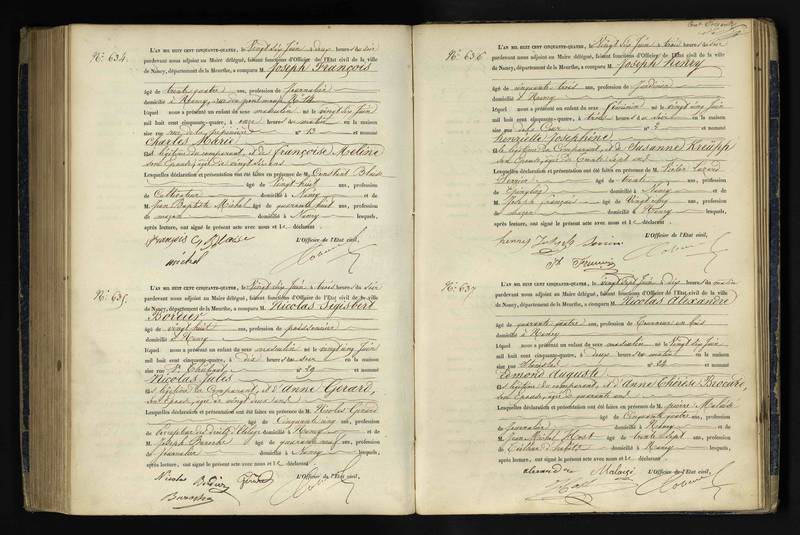 N.° 634.
L'AN MIL HUIT CENT CINQUANTE-QUATRE, le Vingt six Juin à deux heures du soir
pardevant nous adjoint au Maire délégué, faisant fonctions d'Officier de l'Etat civil de la ville
de Nancy, département de la Meurthe, a comparu M. Joseph François
âgé de trente quatre ans, profession de Journalier
domicilié à Nancy,
lequel nous a présenté un enfant du sexe masculin né le vingt six Juin
mil huit cent cinquante-quatre, à onze heures du matin en la maison
sise rue de la pépinière n° 13 et nommé
Charles Marie
fils légitime du comparant, et de françoise Meline
son épouse, âgée de vingt six ans
Lesquelles déclaration et présentation ont été faites en présence de M. Constant Blaise
âgé de Vingt huit ans, profession
de Cultivateur domicilié à Nancy et de
M. Jean Baptiste Michel âgé de quarante huit ans, profession
de maçon domicilié à Nancy lesquels,
après lecture, ont signé le présent acte avec nous et le déclarant
L'Officier de l'Etat civil,
françois C. Blaise
michel
N.° 635.
L'AN MIL HUIT CENT CINQUANTE-QUATRE, le Vingt six Juin à trois heures du soir
pardevant nous adjoint au Maire délégué, faisant fonctions d'Officier de l'Etat civil de la ville
de Nancy, département de la Meurthe, a comparu M. Nicolas Sigisbert
âgé de vingt huit ans, profession de poissonnier
domicilié à Nancy
lequel nous a présenté un enfant du sexe masculin né le vingt cinq Juin
mil huit cent cinquante-quatre, à dix heures du soir en la maison
sise n° 29 et nommé
Nicolas Jules
fils légitime du Comparant, et d'Anne Gérard,
son épouse, âgée de vingt deux ans
Lesquelles déclaration et présentation ont été faites en présence de M. Nicolas Gérard
âgé de Cinquante cinq ans, profession
domicilié à Nancy et de
M. Joseph âgé de quarante neuf ans, profession
de Journalier domicilié à Nancy lesquels,
après lecture, ont signé le présent acte avec nous et le déclarant
L'Officier de l'Etat civil,
Nicolas Gérard
N.° 636
L'AN MIL HUIT CENT CINQUANTE-QUATRE, le Vingt six Juin à trois heures du soir
pardevant nous adjoint au Maire délégué, faisant fonctions d'Officier de l'Etat civil de la ville
de Nancy, département de la Meurthe, a comparu M. Joseph Henry
âgé de cinquante trois ans, profession de Jardinier
domicilié à Nancy
lequel nous a présenté un enfant du sexe féminin né le vingt cinq Juin
mil huit cent cinquante-quatre, à heures du soir en la maison
sise n° 5 et nommé
Henriette Joséphine
fille légitime du Comparant, et de Susanne Kreupp
son épouse, âgée de trente sept ans
Lesquelles déclaration et présentation ont été faites en présence de M. Victor
âgé de trente ans, profession
domicilié à Nancy et de
M. Joseph françois âgé de Vingt cinq ans, profession
de maçon domicilié à Nancy lesquels,
après lecture, ont signé le présent acte avec nous et le déclarant
L'Officier de l'Etat civil,
henry
N.° 637
L'AN MIL HUIT CENT CINQUANTE-QUATRE, le vingt sept Juin à dix heures du matin
pardevant nous adjoint au Maire délégué, faisant fonctions d'Officier de l'Etat civil de la ville
de Nancy, département de la Meurthe, a comparu M. Nicolas Alexandre
âgé de quarante quatre ans, profession de Tourneur en bois
domicilié à Nancy
lequel nous a présenté un enfant du sexe masculin né le vingt six Juin
mil huit cent cinquante-quatre, à deux heures du matin en la maison
sise rue Stanislas n° 24 et nommé
Edmond Auguste
fils légitime du comparant, et d'Anne Thérèse
son épouse, âgée de quarante ans
Lesquelles déclaration et présentation ont été faites en présence de M. pierre Malaisé
âgé de Cinquante quatre ans, profession
de Journalier domicilié à Nancy et de
M. Jean Michel Host âgé de trente sept ans, profession
de Tailleur d'habits domicilié à Nancy lesquels,
après lecture, ont signé le présent acte avec nous et le déclarant
L'Officier de l'Etat civil,
alexandre Malaisé
Host